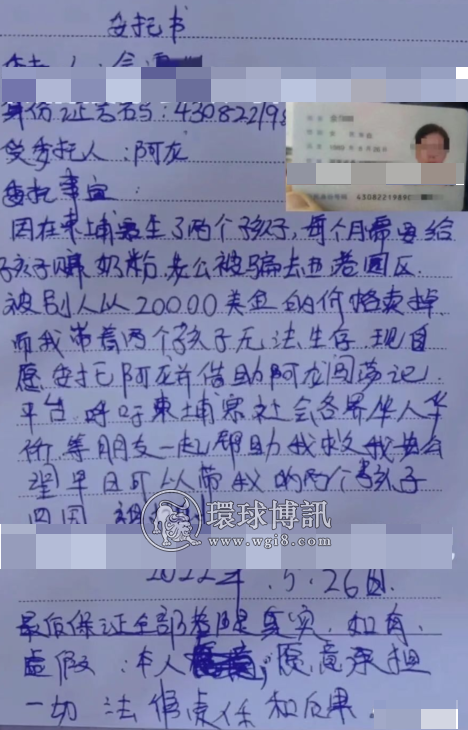 委托书
身份证号码:4308221198
受委托人:阿龙
委托事宜:
因在柬埔寨生了两个孩子,每个月需要给
孩子赚奶粉,老公被骗去
园区
被别人以20000美金的价格卖掉
而我带着两个孩子无法生存.现自
愿委托阿龙并借助阿龙闯荡记
平台.呼吁柬埔寨社会各界华人华
侨等朋友一起帮助我求救我老公
望早日可以带我的两个孩子
回国.
環球博訊
www.wgi8.com
2022年.5.26日.
最后保证全部都是真实.如有
虚假:本人愿意承担
一切法律责任和后果.
環球博訊